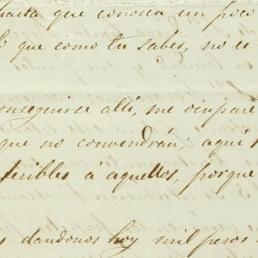 hasta que conosca un poco
que como tu sabes, no es
conseguirse alli, me ocupare
que no convendrán, aqui
feribles á aquellos, porque
dandonos hoy mil pesos